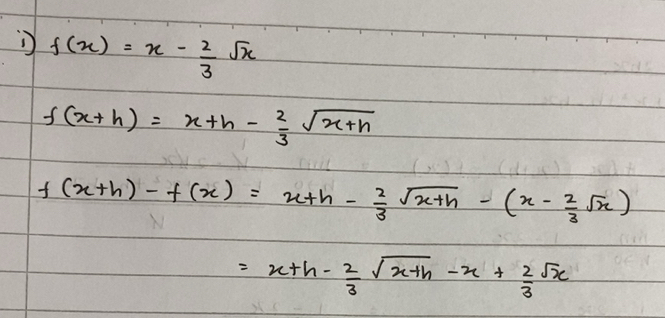 i) f(x) = x - 2/3 √x
f(x+h) = x+h - 2/3 √(x+h)
f(x+h) - f(x) = x+h - 2/3 √(x+h) - (x - 2/3 √x)
= x+h - 2/3 √(x+h) - x + 2/3 √x